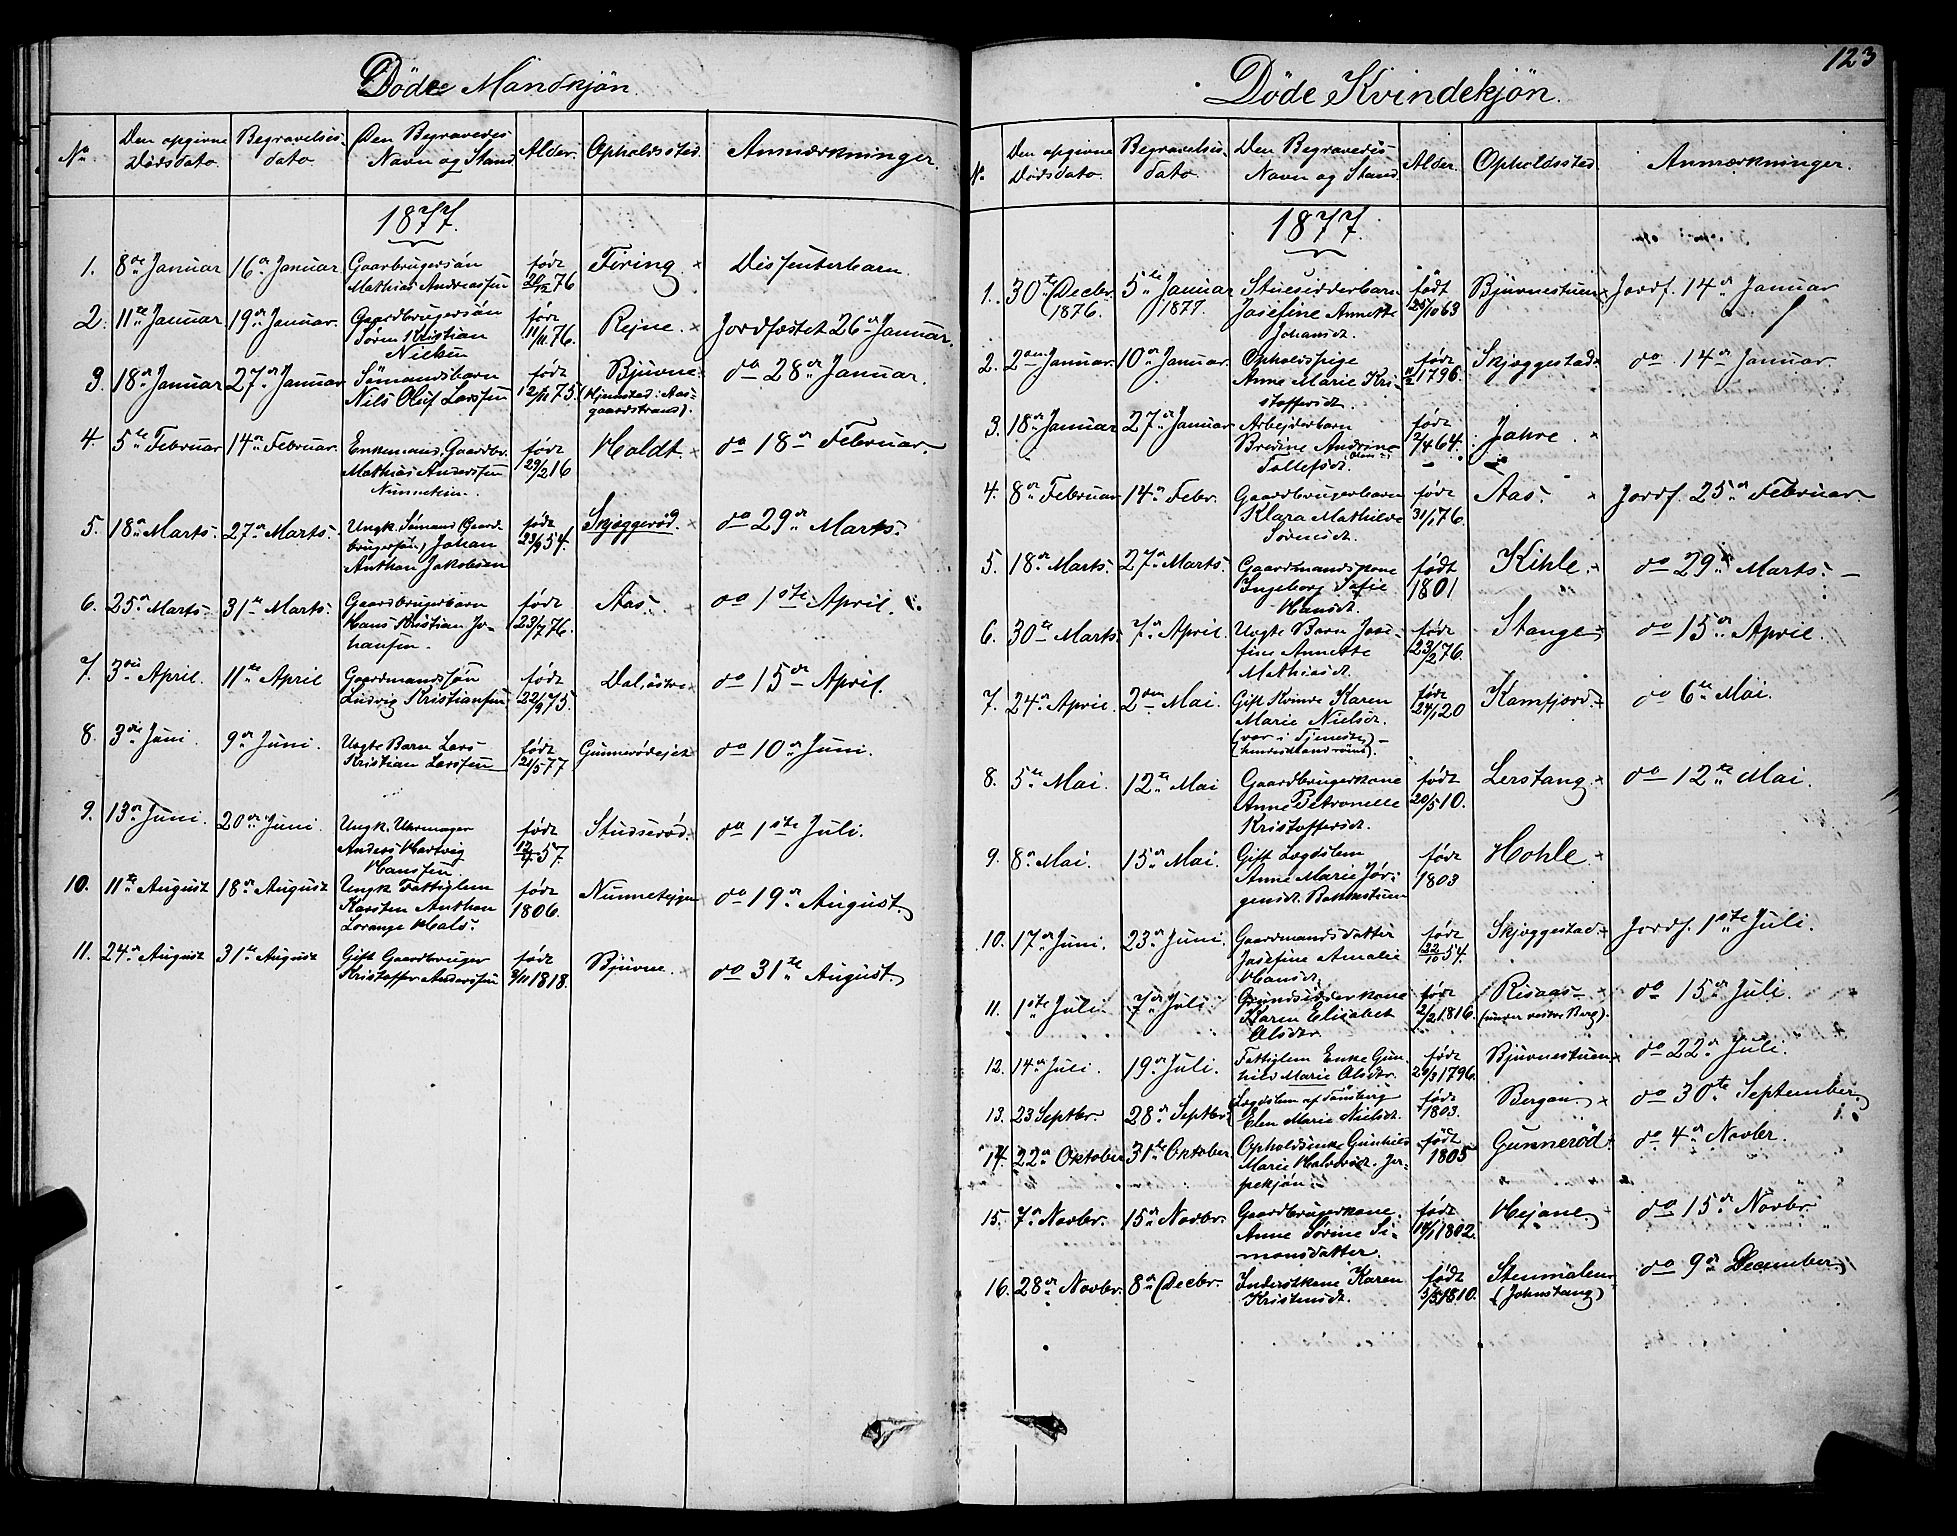 Døde Mandkjøn.
No
Den opgivne Dødsdato.
Begravelsesdato.
Den Begravedes Navn og Stand.
Alder.
Opholdssted.
Anmærkninger.
1877.
1. 8de Januar 16de Januar Gaardbrugersøn født Firing Dissenterbarn.
Mathias Andreassen 20/12 76
2. 11te Januar 19de Januar. Gaardbrugersøn født Rejne. Jordfæstet 26de Januar.
Søren Kristian 11/11 76.
Nielsen
3. 18de Januar 27de Januar Sømandsbarn født Bjuvne do 28de Januar.
Nils Oluf Larssen 12/11 75. (Hjemsted: Aas-
gaardstrand).
4. 5te Februar 14de Februar. Enkemand, Gaardbr. født Holdt. do 18de Februar.
Mathias Anderssen 29/2 16
5. 18de Marts. 27de Marts. Ungk. Sømand (Gaard- født Skjæggerød. do 29de Marts.
brugersøn) Johan 23/9 54.
Anthon Jakobsen
6. 25de Marts. 31te Marts. Gaardbrugerbarn født Aas. do 1ste April.
Hans Kristian Jo- 23/7 76.
hansen.
7. 3die April. 11te April Gaardmandssøn født Dal, østre do 15de April.
Ludvig Kristiansen 22/9 75.
8. 3die Juni. 9de Juni. Uægte Barn Lars født Gunnerødejet do 10de Juni.
Kristian Larssen 21/5 77
9. 13de Juni. 20de Juni. Ungk. Uhrmager født Studserød. do 1ste Juli.
Anders Hartvig 12/7 57.
Hanssen.
10. 11te August 18de August Ungk. Fattiglem født do 19de August.
Karsten Anthon 1806.
Lorange Hals.
11. 24de August 31te August Gift Gaardbruger født Bjuvne. do 31te August.
Kristoffer Anderssen 3/11 1818.
123
Døde Kvindekjøn.
No
Den opgivne Dødsdato.
Begravelsesdato.
Den Begravedes Navn og Stand.
Alder.
Opholdssted.
Anmærkninger.
1877.
1. 30te Decbr. 5te Januar Stuesidderbarn født Bjuvnestuen Jordf. 14de Januar
1876. 1877. Josefine Annette 25/10 63
Johansdt.
2. 2den Januar. 10de Januar. Opholdspige født Skjæggestad do 14de Januar.
Anne Marie Kri- 11/2 1796.
stoffersdt.
3. 18de Januar 27de Januar Arbejderbarn født Jahre.
Bredine Andrine 12/4 64.
Tollefsdt.
4. 8de Februar 14de Febr. Gaardbrugerbarn født Aas. Jordf. 25de Februar
Klara Mathilde 31/1 76.
Sørensdt.
5. 18de Marts. 27de Marts. Gaardmandskone født Kihle. do 29de Marts.
Ingeborg Sofie 1801
Hansdt.
6. 30te Marts. 7de April. Uægte Barn Jose- født Stange do 15de April.
fine Annette 23/2 76.
Mathiasdt.
7. 24de April. 2den Mai. Gift Kvinde Karen født Kamfjord. do 6te Mai.
Marie Nielsdt. 24/1 20
(var i Tjeneste)
8. 5te Mai. 12te Mai Gaardbrugerkone født Lerstang. do 12te Mai.
Anne Petronelle 20/5 10.
Kristoffersdt.
9. 8de Mai. 15de Mai. Gift Lægdslem født Hohle
Anne Marie Jør- 1803
gensdt. Bakkestuen
10. 17de Juni. 23de Juni. Gaardmandsdatter født Skjæggestad. Jordf. 1ste Juli.
Josefine Amalie 22/10 54.
Hansdt.
11. 1ste Juli. 7de Juli. Grundsidderkone født Risaas do 15de Juli.
Karen Elisabet 2/2 1816. (under vestre Berg).
Olsdtr.
12. 14de Juli. 19de Juli. Fattiglem Enke Gun- født Bjuvnestuen do 22de Juli.
hild Marie Olsdtr. 29/3 1796.
13. 23 Septbr 28de Septbr. Lægdslem af Tønsberg født Bergan. do 30te September
Elen Marie Nielsdt. 1803.
14. 22de Oktober 31te Oktober Opholdsenke Gunhild født Gunnerød do 4de Novbr.
Marie Halvorsdt. Jer- 1805
pekjøn.
15. 7de Novbr. 15de Novbr. Gaardbrugerkone født Hejane do 15de Novbr
Anne Sørine Si- 14/1 1802.
monsdatter.
16. 28de Novbr. 8de Decbr. Inderstkone Karen født Stenmalen do 9de December
Kristensdt. 3/5 1810. (Johnstang)